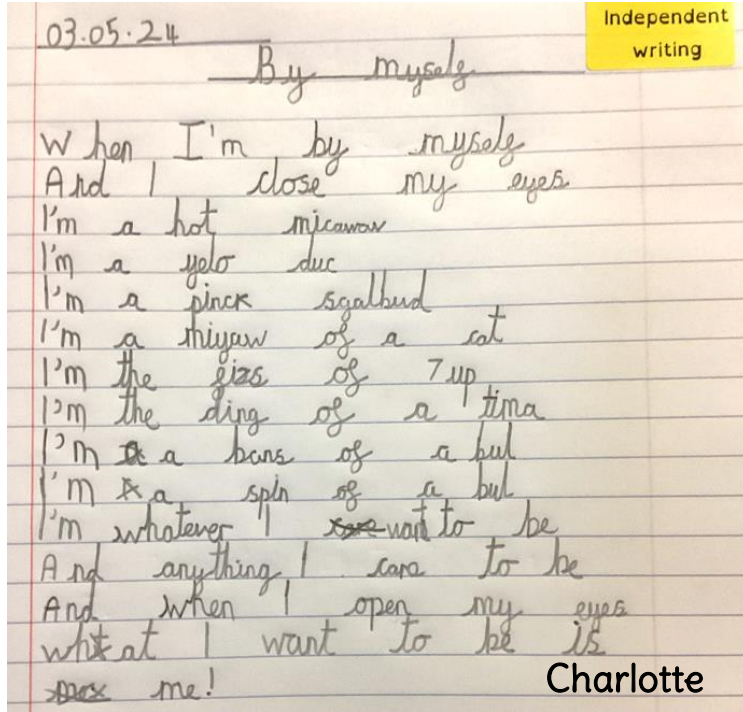 03.05.24
Independent writing
By myself
When I'm by myself
And I close my eyes
I'm a hot micawav
I'm a yelo duc
I'm a pinck sgalbud
I'm a miyaw of a cat
I'm the fizs of 7up
I'm the ding of a tima
I'm a bans of a bul
I'm a spin of a bul
I'm whatever I want to be
And anything I care to be
And when I open my eyes
what I want to be is
me!
Charlotte